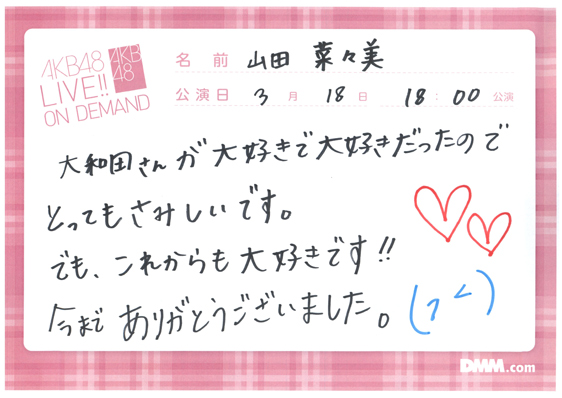 AKB48
LIVE!!
ON DEMAND
AKB
48
名前 山田 菜々美
公演日 3月 18日 18:00 公演
大和田さんが大好きで大好きだったので
とってもさみしいです。
でも、これからも大好きです!!
今まで ありがとうございました。
DMM.com